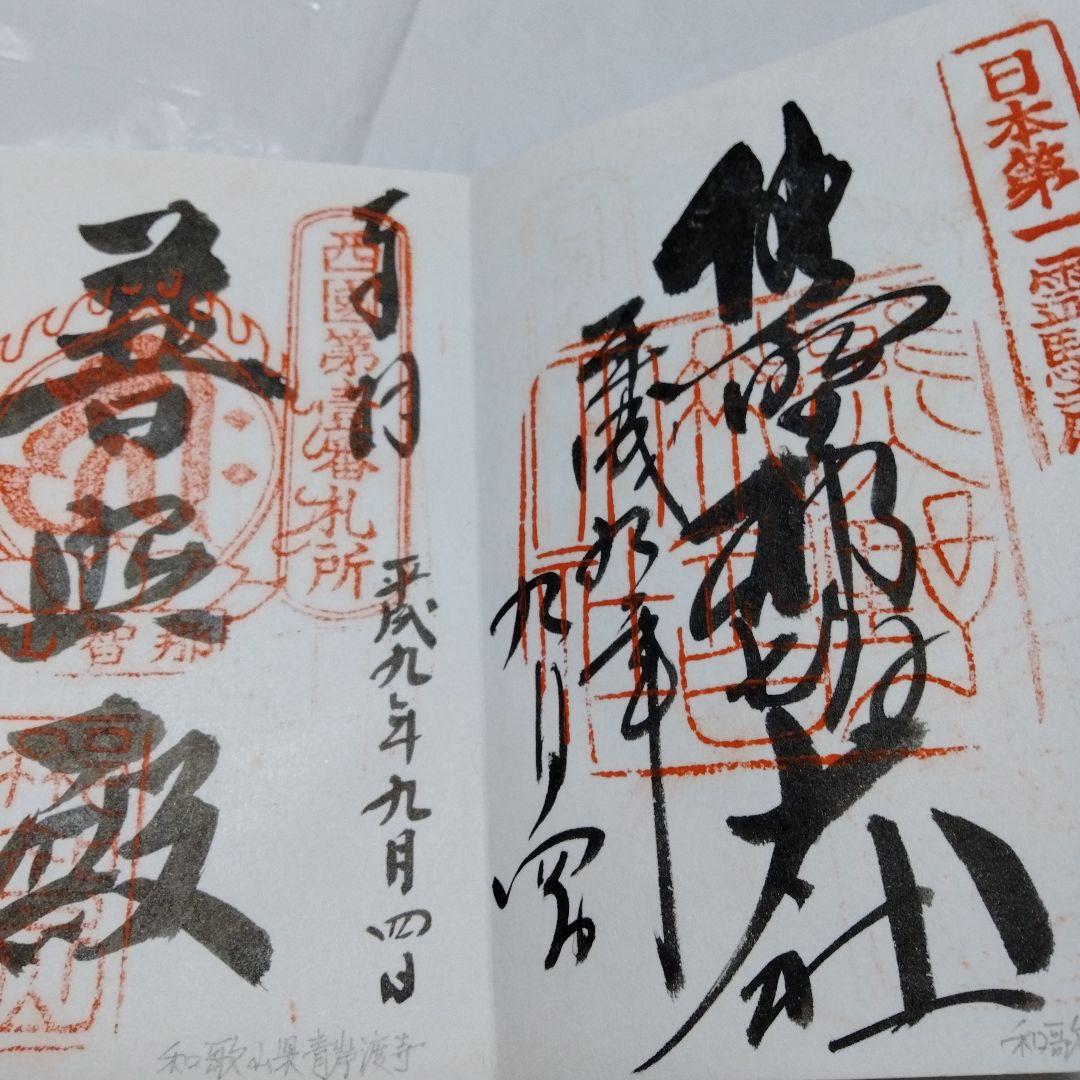 日本第一霊験所
熊野那智大社
平成九年
九月四日
奉拝
西國第壹番札所
普照殿
那智山
平成九年九月四日
和歌山県青岸渡寺
和歌